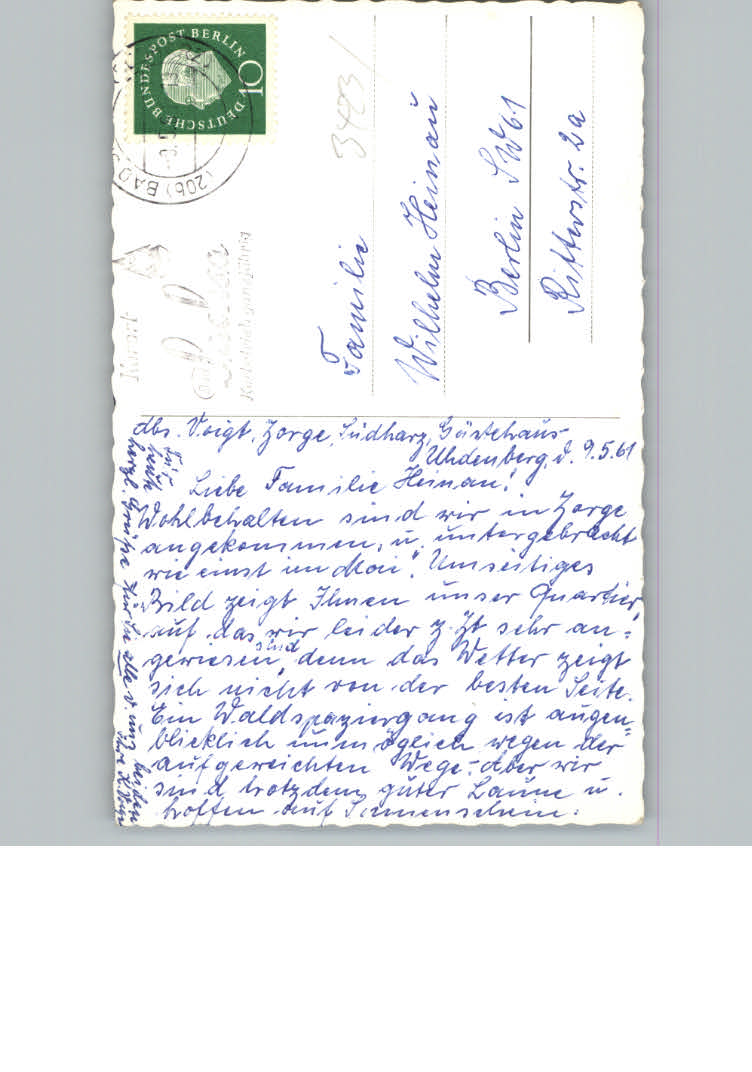 DEUTSCHE BUNDESPOST BERLIN
10
(20b) BAD
Kurort
Bad
3423/
Familie
Wilhelm Heinau
Berlin SW61
Ritterstr. 2a
Abs. Voigt, Zorge, Südharz, Gästehaus
Uhdenberg. d. 9.5.61
Liebe Familie Heinau!
Wohlbehalten sind wir in Zorge
angekommen, u. untergebracht
"wie einst im Mai". Umseitiges
Bild zeigt Ihnen unser Quartier,
auf das wir leider z. Zt sehr an=
gewiesen sind, denn das Wetter zeigt
sich nicht von der besten Seite.
Ein Waldspaziergang ist augen=
blicklich unmöglich wegen der
aufgeweichten Wege. Aber wir
sind trotzdem guter Laune u.
hoffen auf Sonnenschein.
herzl. Grüße für Sie alle v. uns beiden
Ihre